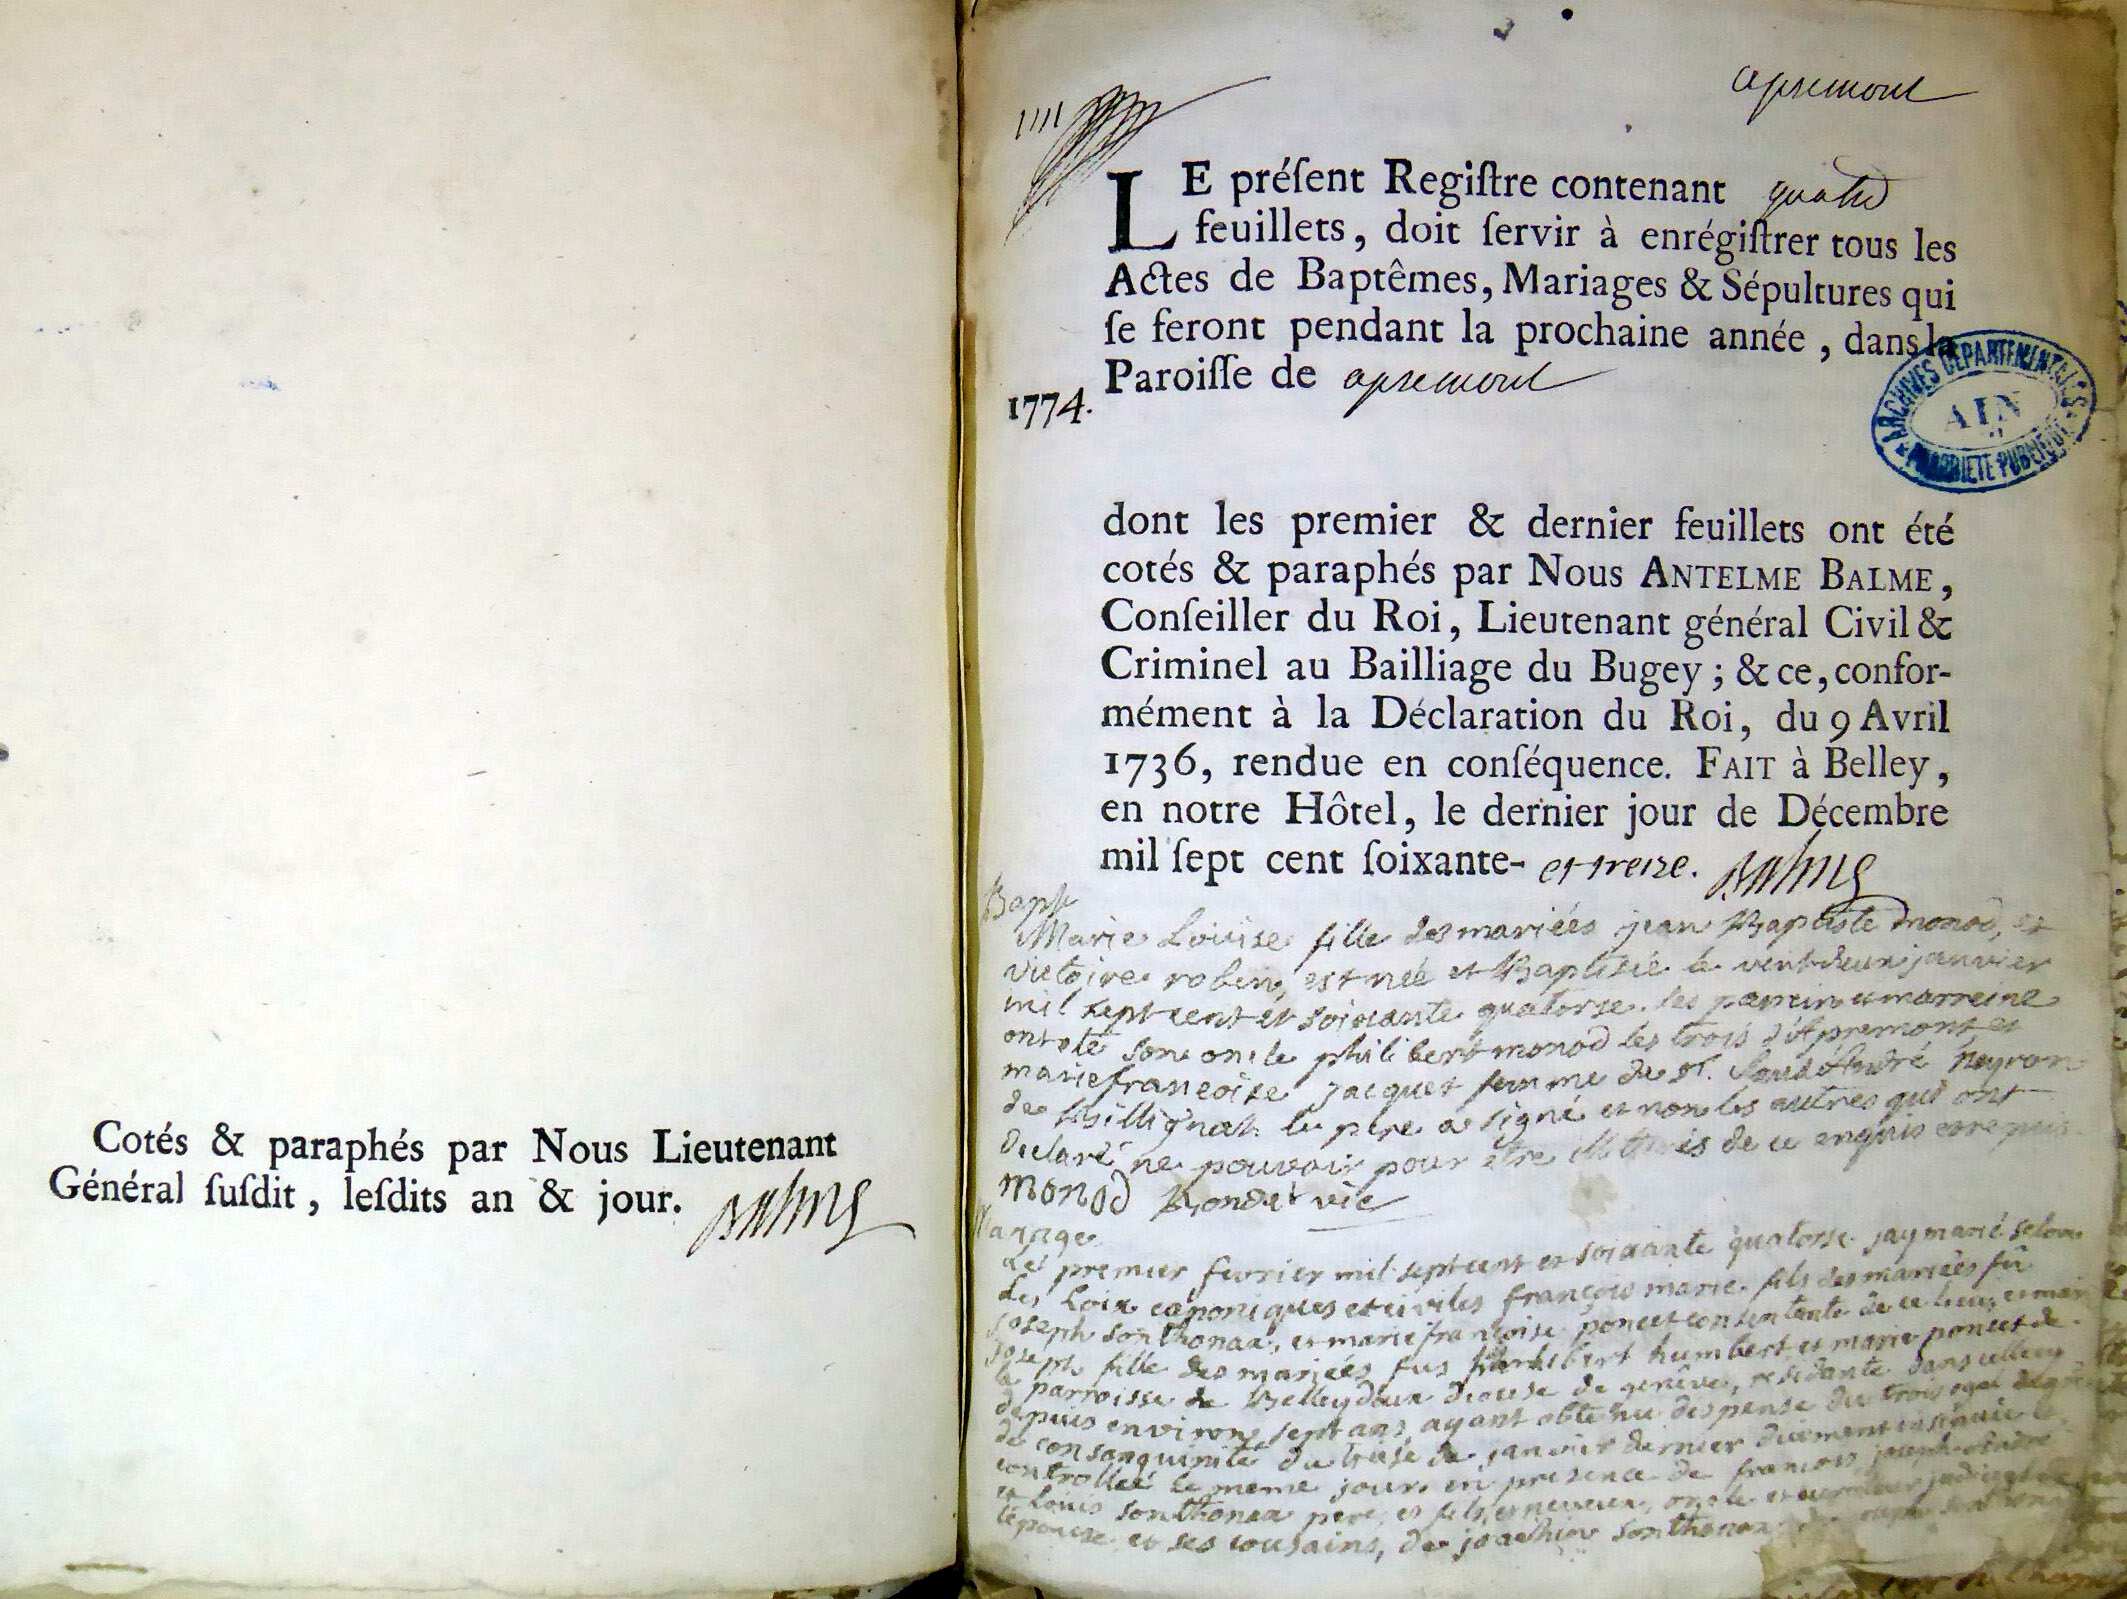 Cotés & paraphés par Nous Lieutenant
Général ſuſdit, leſdits an & jour. Balme
IIII
apremont
LE préſent Regiſtre contenant quatre
feuillets, doit ſervir à enrégiſtrer tous les
Actes de Baptêmes, Mariages & Sépultures qui
ſe feront pendant la prochaine année, dans la
Paroiſſe de apremont
1774.
ARCHIVES DÉPARTEMENTALES
AIN
PROPRIÉTÉ PUBLIQUE
dont les premier & dernier feuillets ont été
cotés & paraphés par Nous ANTELME BALME,
Conſeiller du Roi, Lieutenant général Civil &
Criminel au Bailliage du Bugey; & ce, confor-
mément à la Déclaration du Roi, du 9 Avril
1736, rendue en conſéquence. FAIT à Belley,
en notre Hôtel, le dernier jour de Décembre
mil ſept cent ſoixante- et treize. Balme
Bapt
Marie Louise fille des mariés jean Baptiste monod, et
victoire robin, est née et Baptisée le vent deux janvier
mil sept cent et soixante quatorse. ses parrein et marreine
ont été son oncle philibert monod les trois d'Apremont, et
marie francoise jacquet femme de Sr. André Neyron
de Billignat. le pere a signé et non les autres qui ont
declaré ne pouvoir pour etre illitérés de ce enquis et requis
monod Rondet vic
Mariage
Le premier fevrier mil sept cent et soixante quatorse jay marié selon
les Loix canoniques et civiles françois marie fils des mariées fû
joseph sonthonax, et marie françoise poncet consentante de ce lieu, et marie
joseph fille des mariées fus philibert humbert et marie poncet de
la parroisse de Belleydoux diocese de genêve, residante dans
depuis environ sept ans, ayant obtenu dispense du trois
de consanguinité du treise de janvier dernier duement
controllée le meme jour. en presence de francois joseph
et Louis sonthonax pere, et fils, et neveux, oncle et
lépouse et ses cousains, de joachin sonthonax